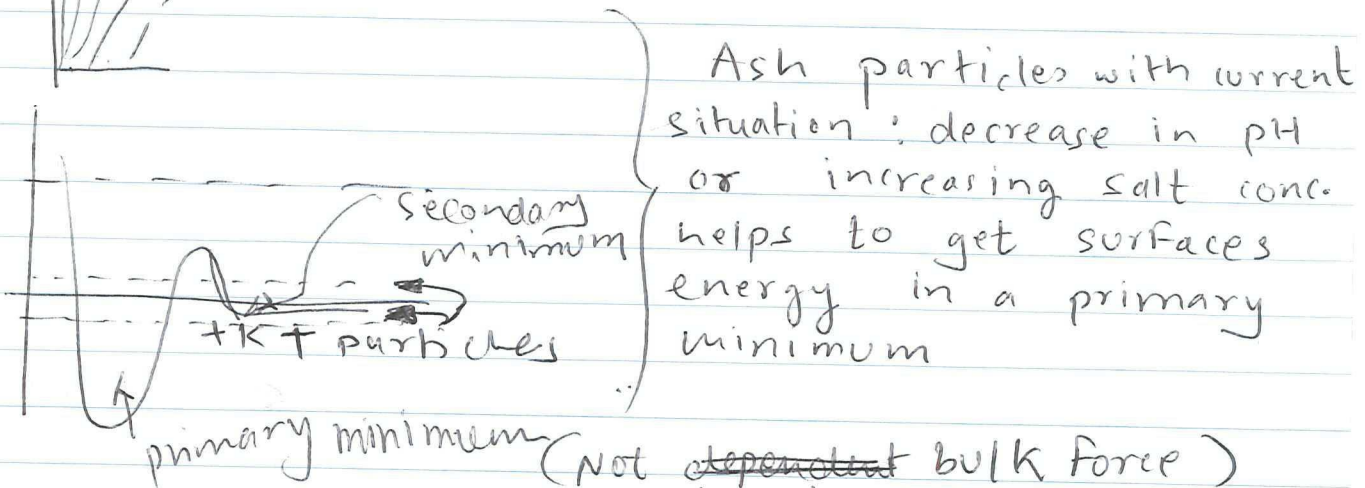 Ash particles with current
situation : decrease in pH
or increasing salt conc.
helps to get surfaces
energy in a primary
minimum
secondary
minimum
+K+ particles
primary minimum (Not bulk force)